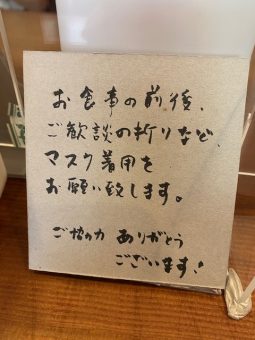 お食事の前後、
ご歓談の折りなど、
マスク着用を
お願い致します。
ご協力 ありがとう
ございます!